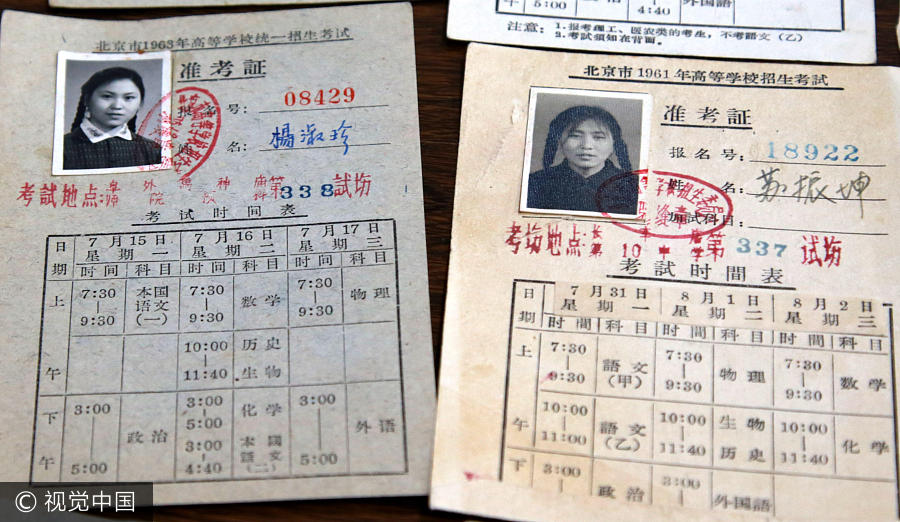 5:00
4:40 語文(二)
5:00
外國語
注意：1.报考理工、医农类的考生，不考語文(乙)
2.考試須知在背面。
北京市1963年高等学校統一招生考試
准考証
报名号：08429
姓名：楊淑珍
考試地点：阜外馬神廟
師院
第338試坊
考試时间表
日期 7月15日 星期一 7月16日 星期二 7月17日 星期三
时间 科目 时间 科目 时间 科目
上午 7:30-9:30 本国語文(一) 7:30-9:30 数学 7:30-9:30 物理
10:00-11:40 历史 生物
下午 3:00-5:00 政治 3:00-5:00 化学 3:00-5:00 外语
3:00-4:40 本國語文(二)
北京市1961年高等学校招生考試
准考証
报名号：18922
姓名：苏振坤
試科目：
考坊地点：第10中学 第337試坊
考試时間表
日期 7月31日 星期一 8月1日 星期二 8月2日 星期三
时間 科目 时間 科目 时間 科目
上午 7:30-9:30 語文(甲) 7:30-9:30 物理 7:30-9:30 数学
10:00-11:00 語文(乙) 10:00-11:40 生物 历史 10:00-11:40 化学
下 3:00 政治 3:00 外国語
© 视觉中国